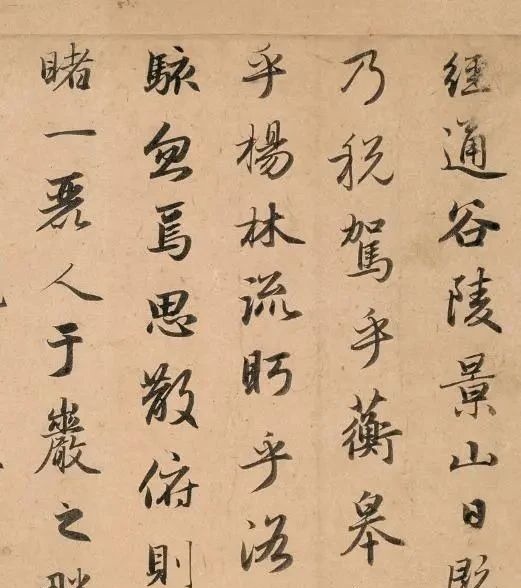 經通谷陵景山日既
乃税駕乎蘅皋
乎楊林流眄乎洛
駭忽焉思散俯則
睹一麗人于巖之畔